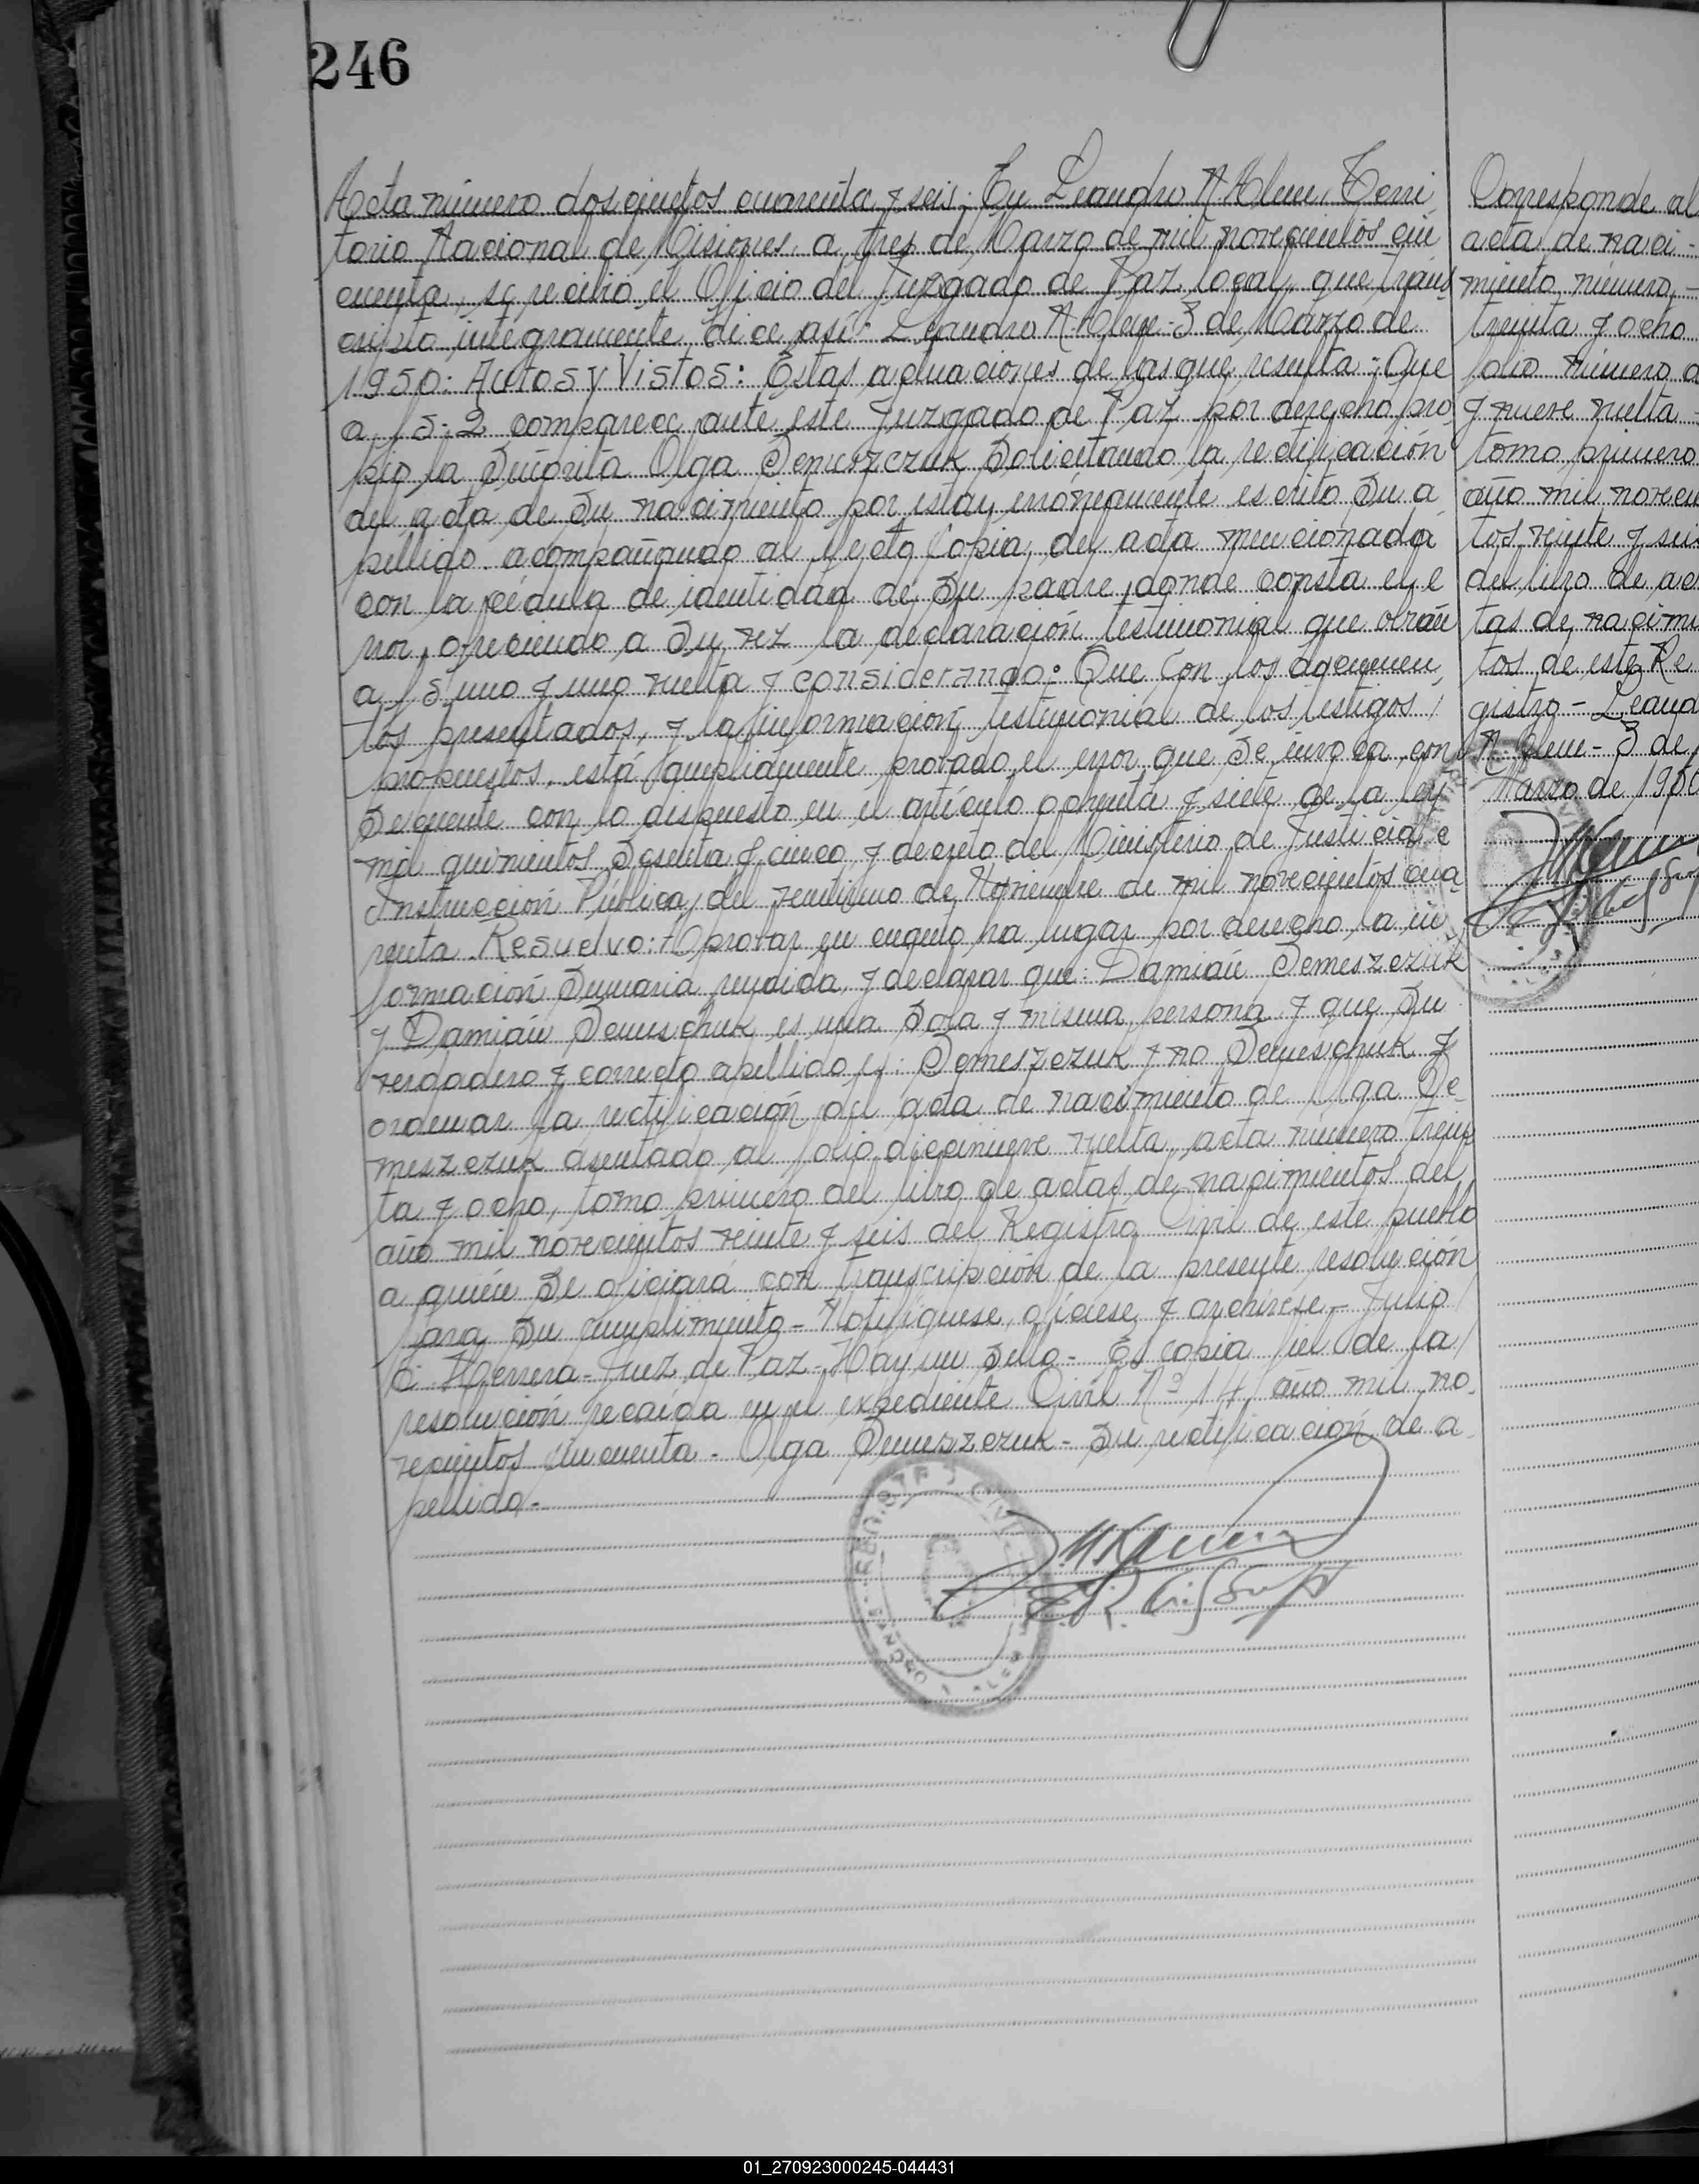 246
Acta número doscientos cuarenta y seis: En Leandro N. Alem, Terri
torio Nacional de Misiones, a tres de Marzo de mil novecientos cin
cuenta, se recibió el Oficio del Juzgado de Paz local, que trans
cripto integramente dice así: Leandro N. Alem - 3 de Marzo de
1950: Autos y Vistos: Estas actuaciones de las que resulta: Que
a fs. 2 comparece ante este Juzgado de Paz por derecho pro
pio la Señorita Olga Demeszczuk Solicitando la rectificación
del acta de Su nacimiento por estar erróneamente escrito Su a
pellido acompañando al efecto Copia del acta mencionada
con la cédula de identidad de Su padre donde consta el e
rror, ofreciendo a Su vez la declaración testimonial que obran
a fs uno y uno vuelta y considerando: Que Con los documen
tos presentados, y la información testimonial de los testigos
propuestos, está ampliamente probado el error que Se invoca, con
Secuente con lo dispuesto en el artículo ochenta y siete de la ley
mil quinientos Sesenta y cinco y decreto del Ministerio de Justicia e
Instrucción Pública del veintiuno de Noviembre de mil novecientos cua
renta Resuelvo: Aprobar en cuanto ha lugar por derecho la in
formación Sumaria rendida, y declarar que: Damián Demeszezuk
y Damián Demeschuk es una Sola y misma persona y que Su
verdadero y correcto apellido es: Demeszezuk y no Demeschuk y
ordenar la rectificación del acta de nacimiento de Olga De
meszezuk asentado al folio diecinueve vuelta, acta número trein
ta y ocho, tomo primero del libro de actas de nacimientos del
año mil novecientos veinte y seis del Registro Civil de este pueblo
a quién Se oficiará con transcripción de la presente resolución
para Su cumplimiento - Notifíquese, ofíciese y archívese - Julio
C. Herrera - Juez de Paz - Hay un Sello - Es copia fiel de la
resolución recaída en el expediente Civil Nº 14 año mil no
vecientos cincuenta - Olga Demeszezuk - Su rectificación de a
pellido -
Corresponde al
acta de naci-
miento número -
treinta y ocho
folio número d
y nueve vuelta -
tomo primero
año mil novecien
tos veinte y seis
del libro de ac
tas de nacimien
tos de este Re
gistro - Leand
N. Alem - 3 de
Marzo de 1950
01_270923000245-044431